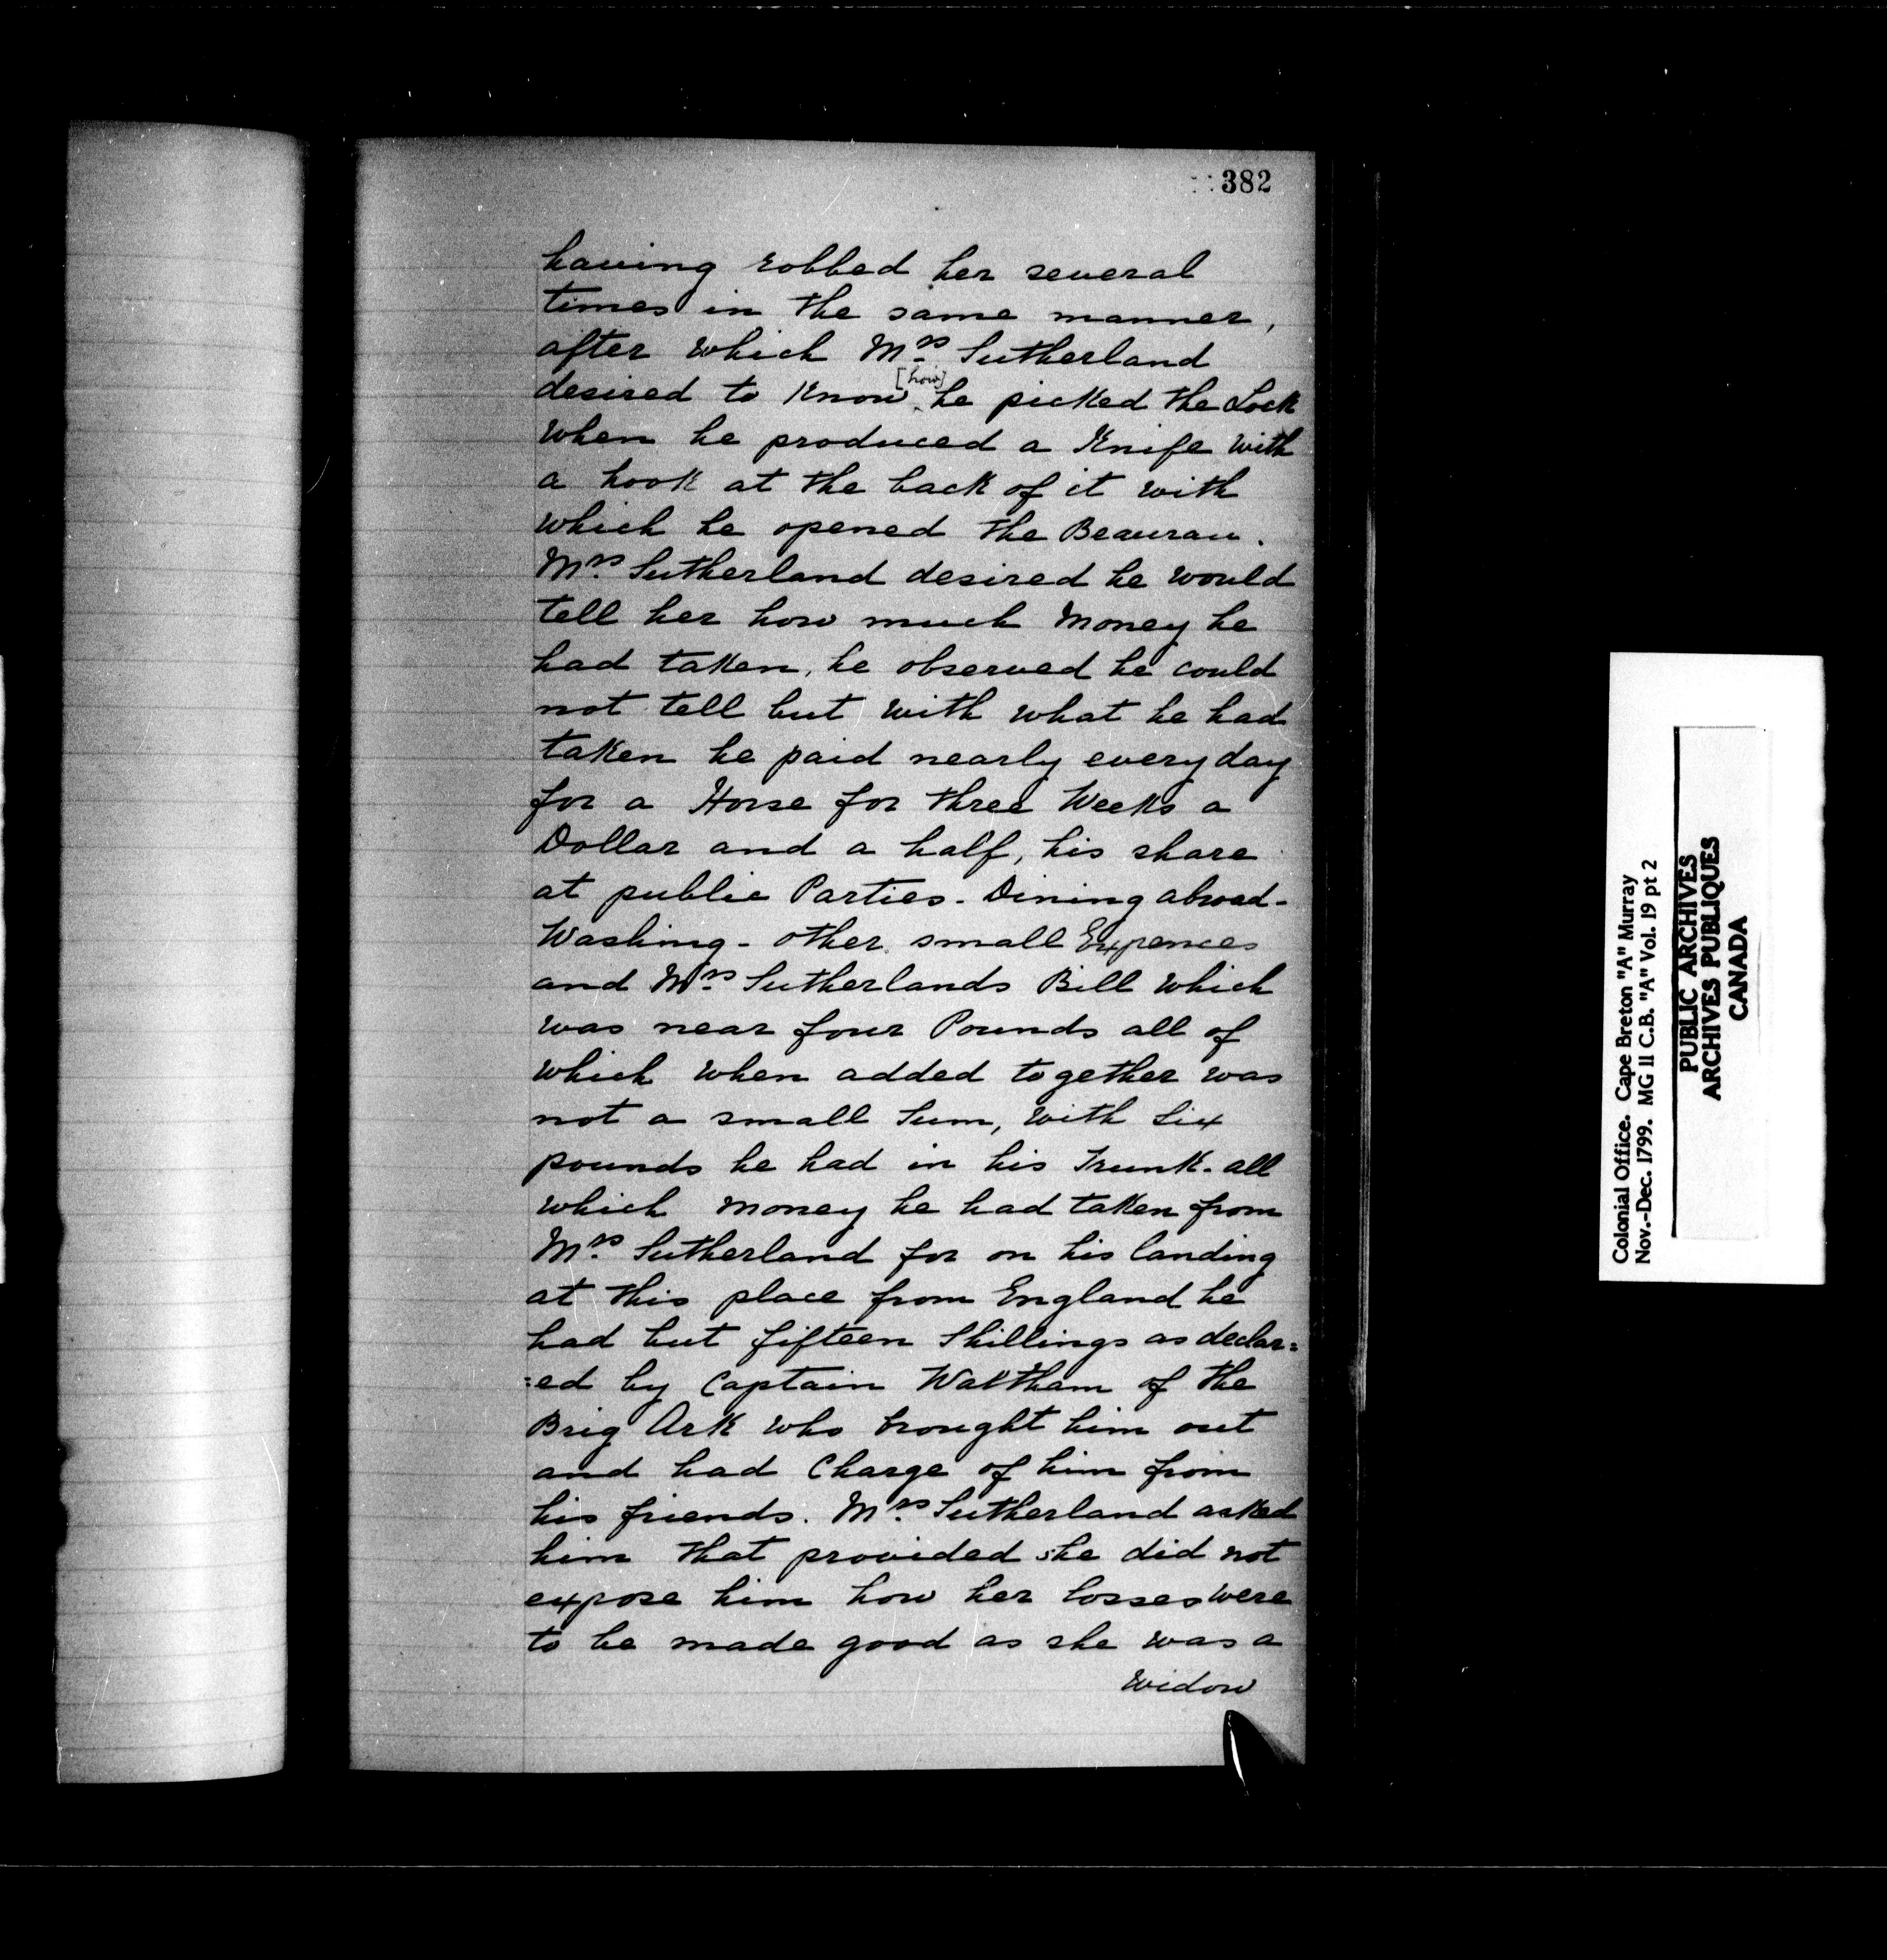 382
having robbed her several
times in the same manner,
after which Mrs. Sutherland
desired to Know [how] he picked the Lock
when he produced a Knife with
a hook at the back of it with
which he opened the Beaurau.
Mrs. Sutherland desired he would
tell her how much Money he
had taken, he observed he could
not tell but with what he had
taken he paid nearly every day
for a Horse for three Weeks a
Dollar and a half, his share
at public Parties - Dining abroad -
Washing - other small Expences
and Mrs. Sutherlands Bill which
was near four Pounds all of
which when added together was
not a small Sum, with Six
pounds he had in his Trunk - all
which Money he had taken from
Mrs. Sutherland for on his landing
at this place from England he
had but fifteen Shillings as declar=
=ed by Captain Waltham of the
Brig Ark who brought him out
and had Charge of him from
his friends. Mrs. Sutherland asked
him that provided she did not
expose him how her losses were
to be made good as she was a
Widow
Colonial Office. Cape Breton "A" Murray
Nov.-Dec. 1799. MG 11 C.B. "A" Vol. 19 pt 2
PUBLIC ARCHIVES
ARCHIVES PUBLIQUES
CANADA